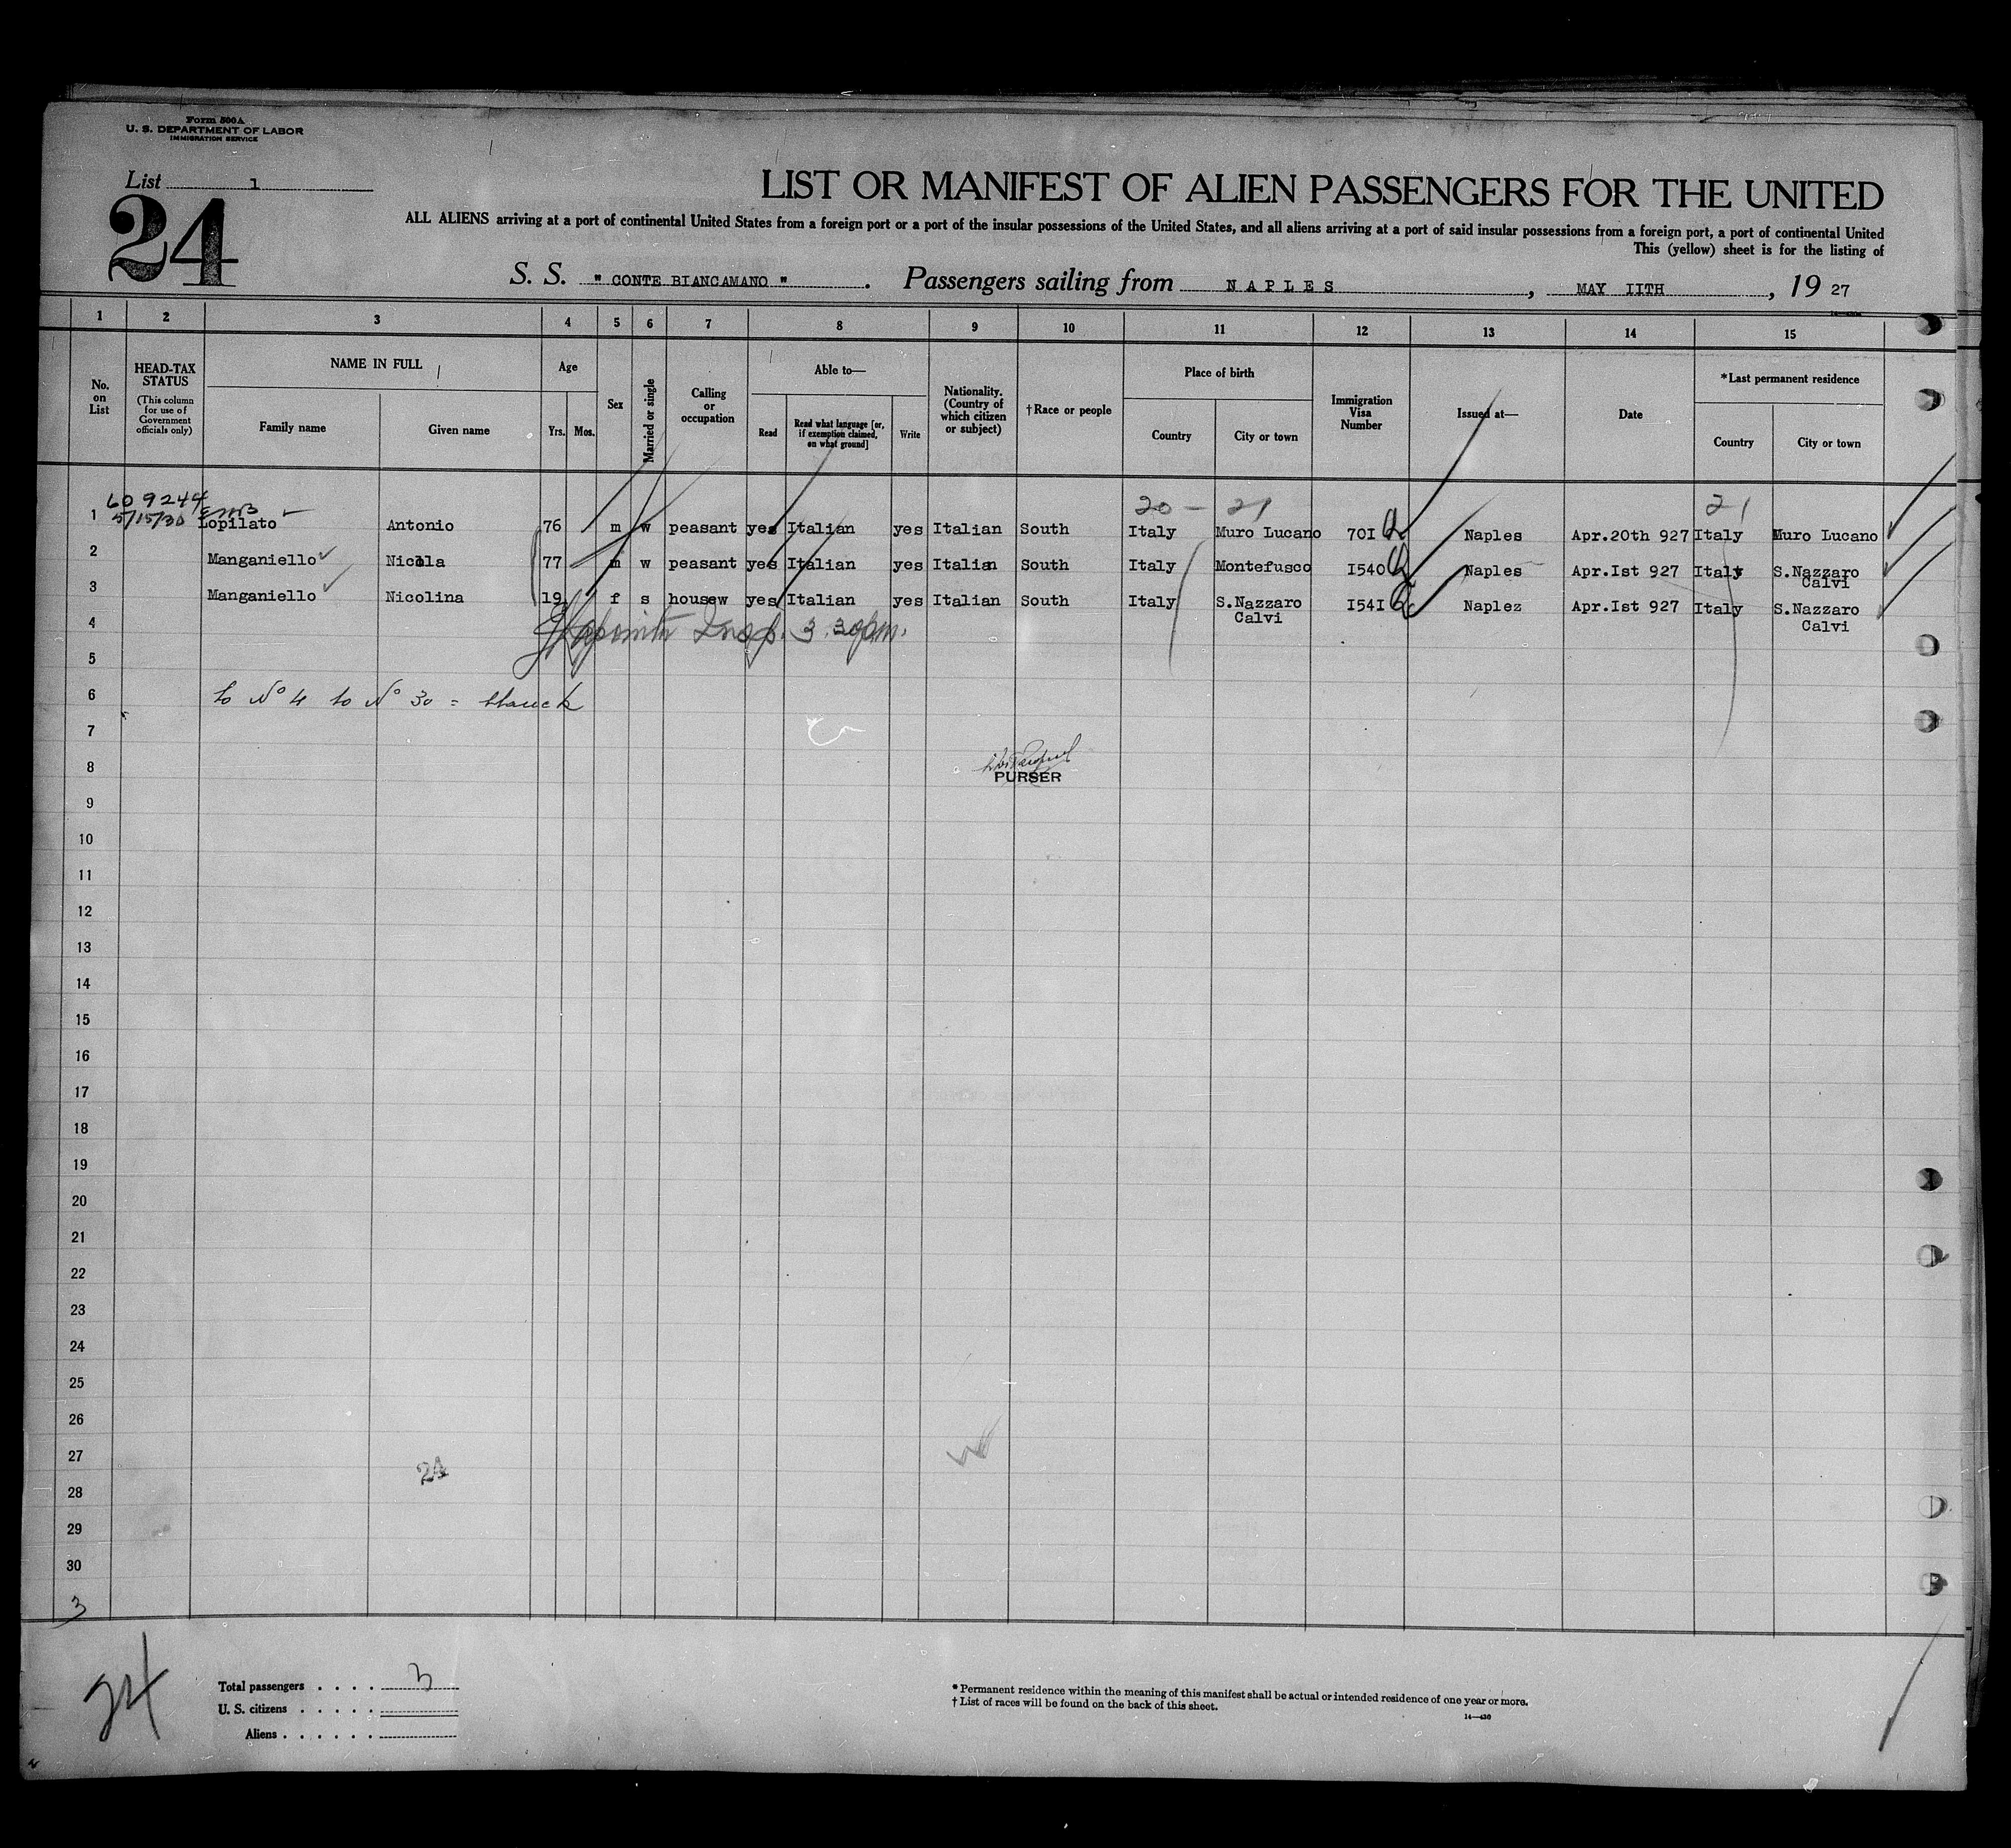 Form 500A
U. S. DEPARTMENT OF LABOR
IMMIGRATION SERVICE
List 1
24
LIST OR MANIFEST OF ALIEN PASSENGERS FOR THE UNITED
ALL ALIENS arriving at a port of continental United States from a foreign port or a port of the insular possessions of the United States, and all aliens arriving at a port of said insular possessions from a foreign port, a port of continental United
This (yellow) sheet is for the listing of
S. S. " CONTE BIANCAMANO " . Passengers sailing from NAPLES , MAY IITH , 19 27
1 2 3 4 5 6 7 8 9 10 11 12 13 14 15
No. on List
HEAD-TAX STATUS
(This column for use of Government officials only)
NAME IN FULL
Family name Given name
Age
Yrs. Mos.
Sex
Married or single
Calling or occupation
Able to—
Read
Read what language [or, if exemption claimed, on what ground]
Write
Nationality. (Country of which citizen or subject)
†Race or people
Place of birth
Country City or town
Immigration Visa Number
Issued at—
Date
*Last permanent residence
Country City or town
60 9244
5/15/30
20 - 21 21
1 Lopilato Antonio 76 m w peasant yes Italian yes Italian South Italy Muro Lucano 70I Naples Apr.20th 927 Italy Muro Lucano
2 Manganiello Nicola 77 m w peasant yes Italian yes Italian South Italy Montefusco I540 Naples Apr.Ist 927 Italy S.Nazzaro Calvi
3 Manganiello Nicolina 19 f s housew yes Italian yes Italian South Italy S.Nazzaro Calvi I54I Naplez Apr.Ist 927 Italy S.Nazzaro Calvi
4 Insp. 3.30pm.
5
6 to No 4 to No 30 = blanck
7
8 PURSER
9
10
11
12
13
14
15
16
17
18
19
20
21
22
23
24
25
26
27 24
28
29
30
3
24
Total passengers . . . . 3
U. S. citizens . . . . .
Aliens . . . . . .
* Permanent residence within the meaning of this manifest shall be actual or intended residence of one year or more.
† List of races will be found on the back of this sheet.
14—430